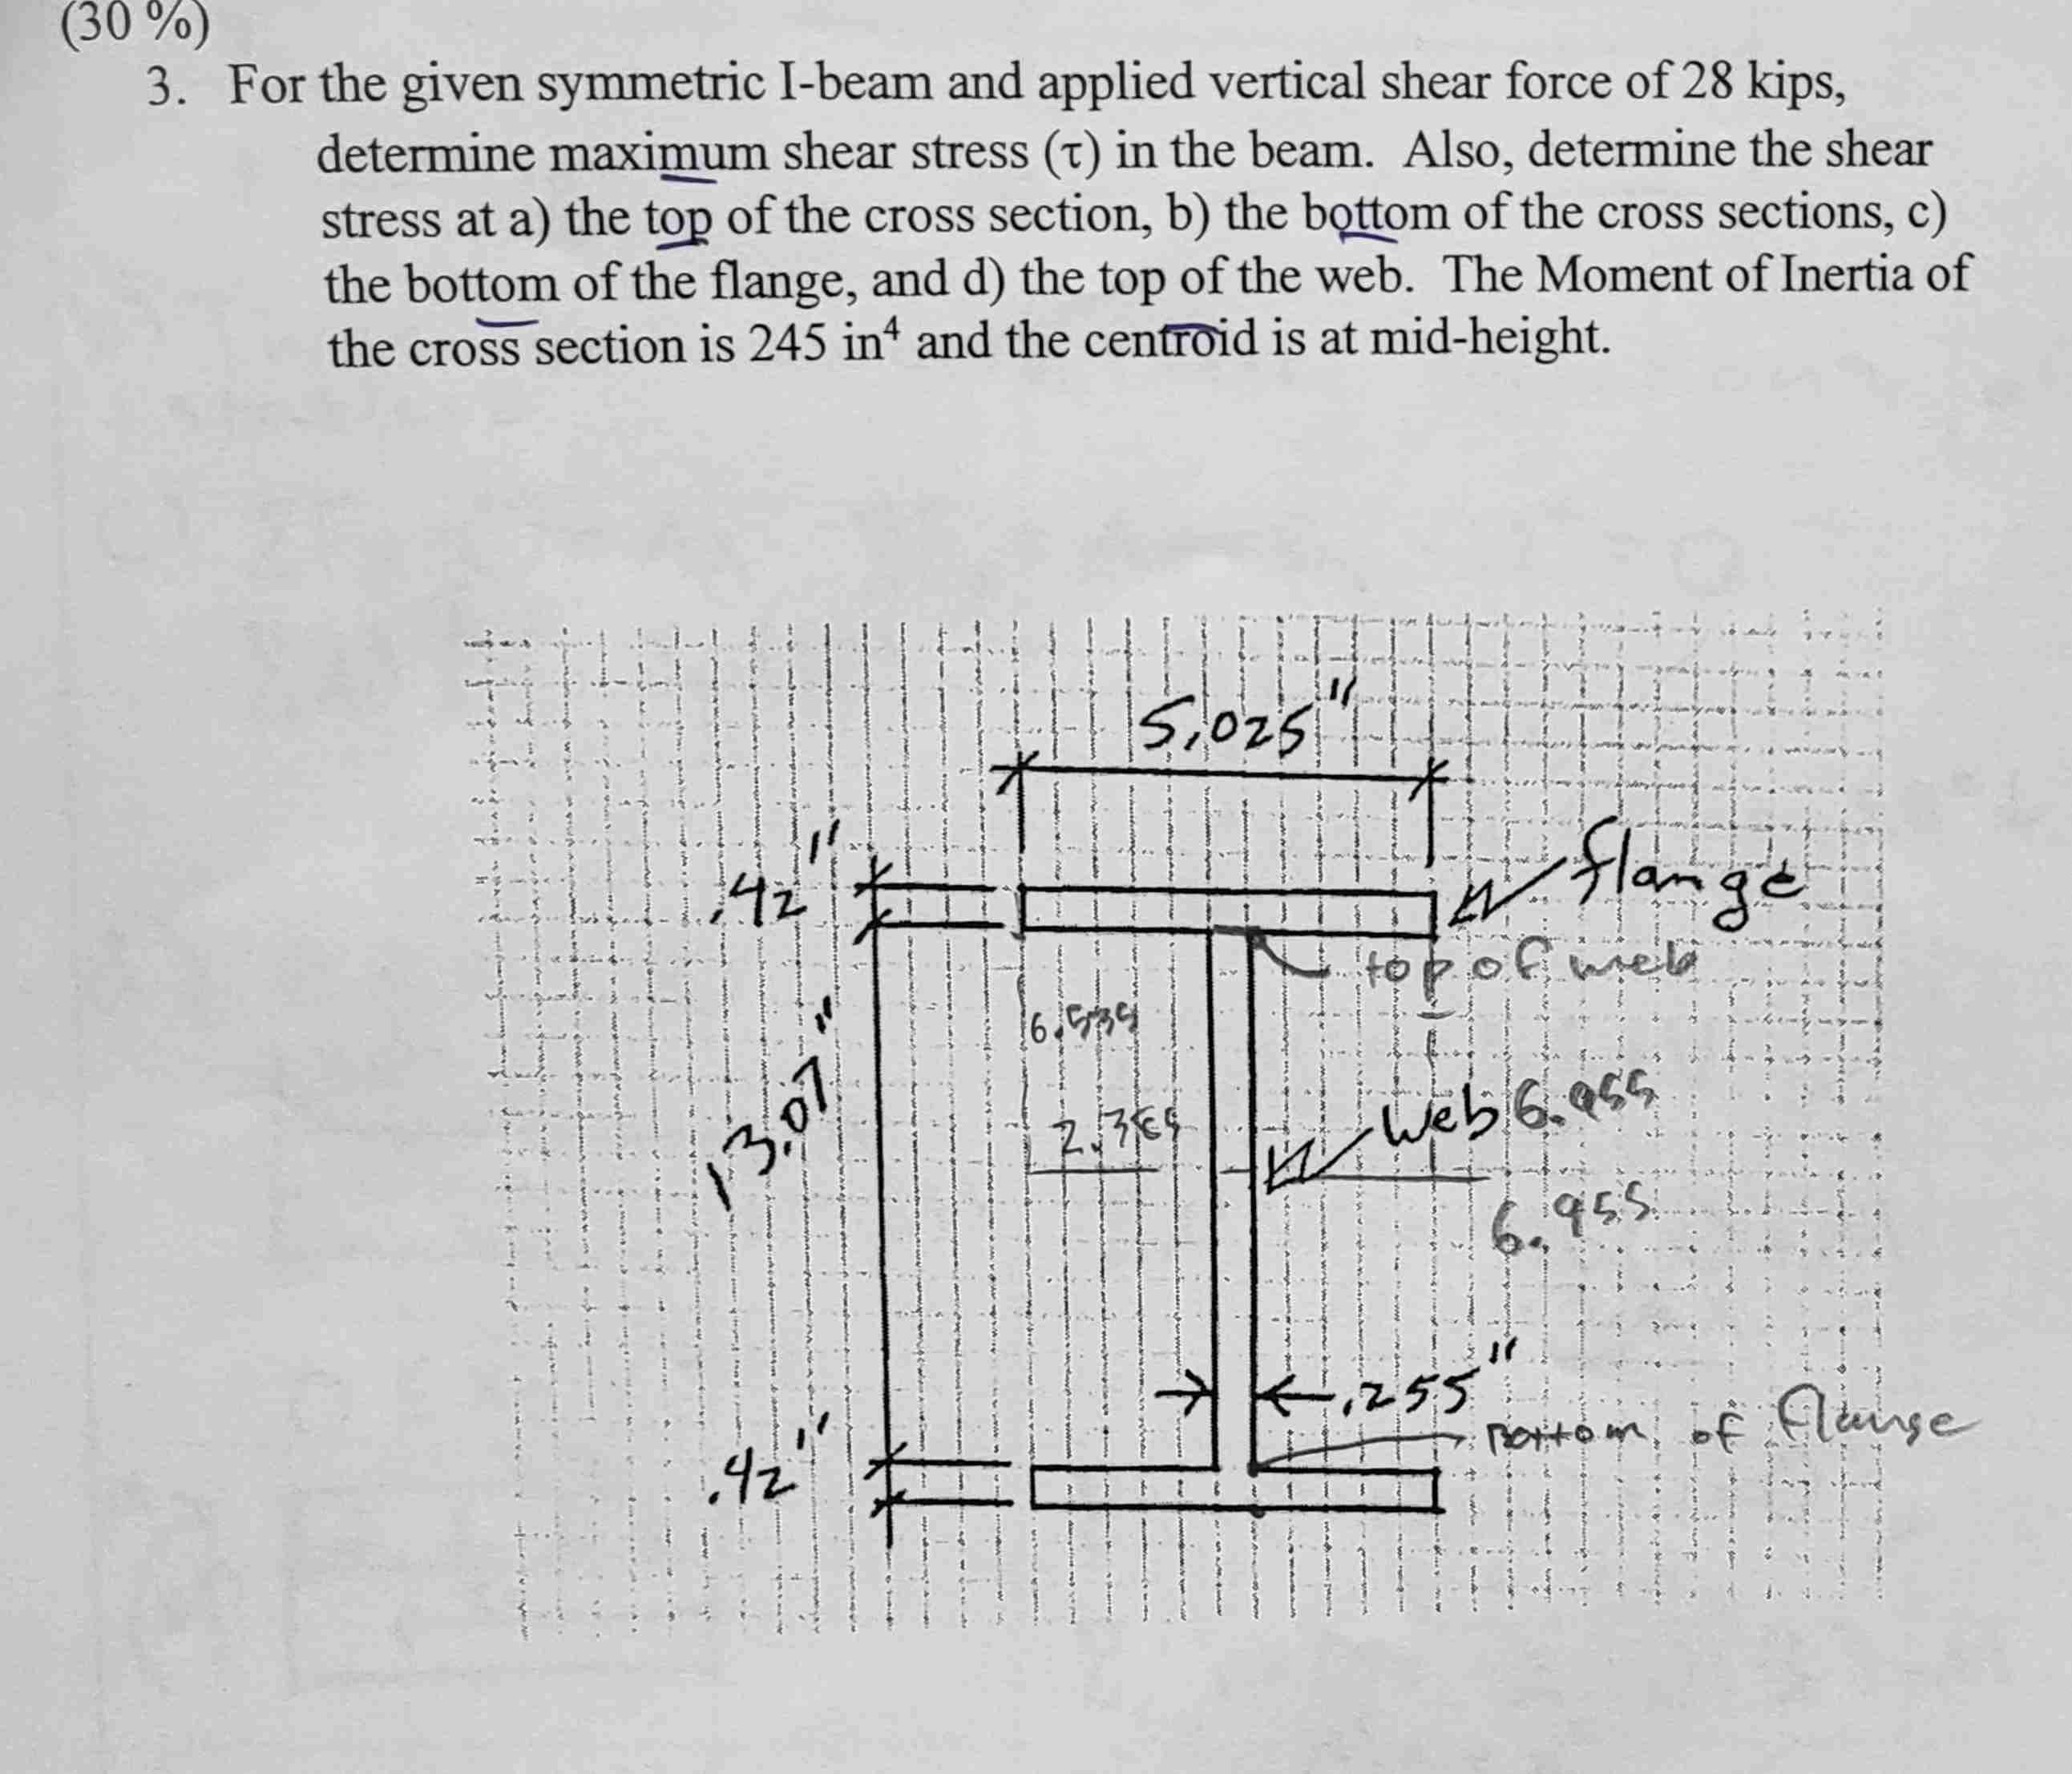 (30 %)
3. For the given symmetric I-beam and applied vertical shear force of 28 kips,
determine maximum shear stress (τ) in the beam. Also, determine the shear
stress at a) the top of the cross section, b) the bottom of the cross sections, c)
the bottom of the flange, and d) the top of the web. The Moment of Inertia of
the cross section is 245 in⁴ and the centroid is at mid-height.
5.025"
.42"
flange
top of web
6.535
13.07"
web 6.955
6.955
.255"
Bottom of flange
.42"